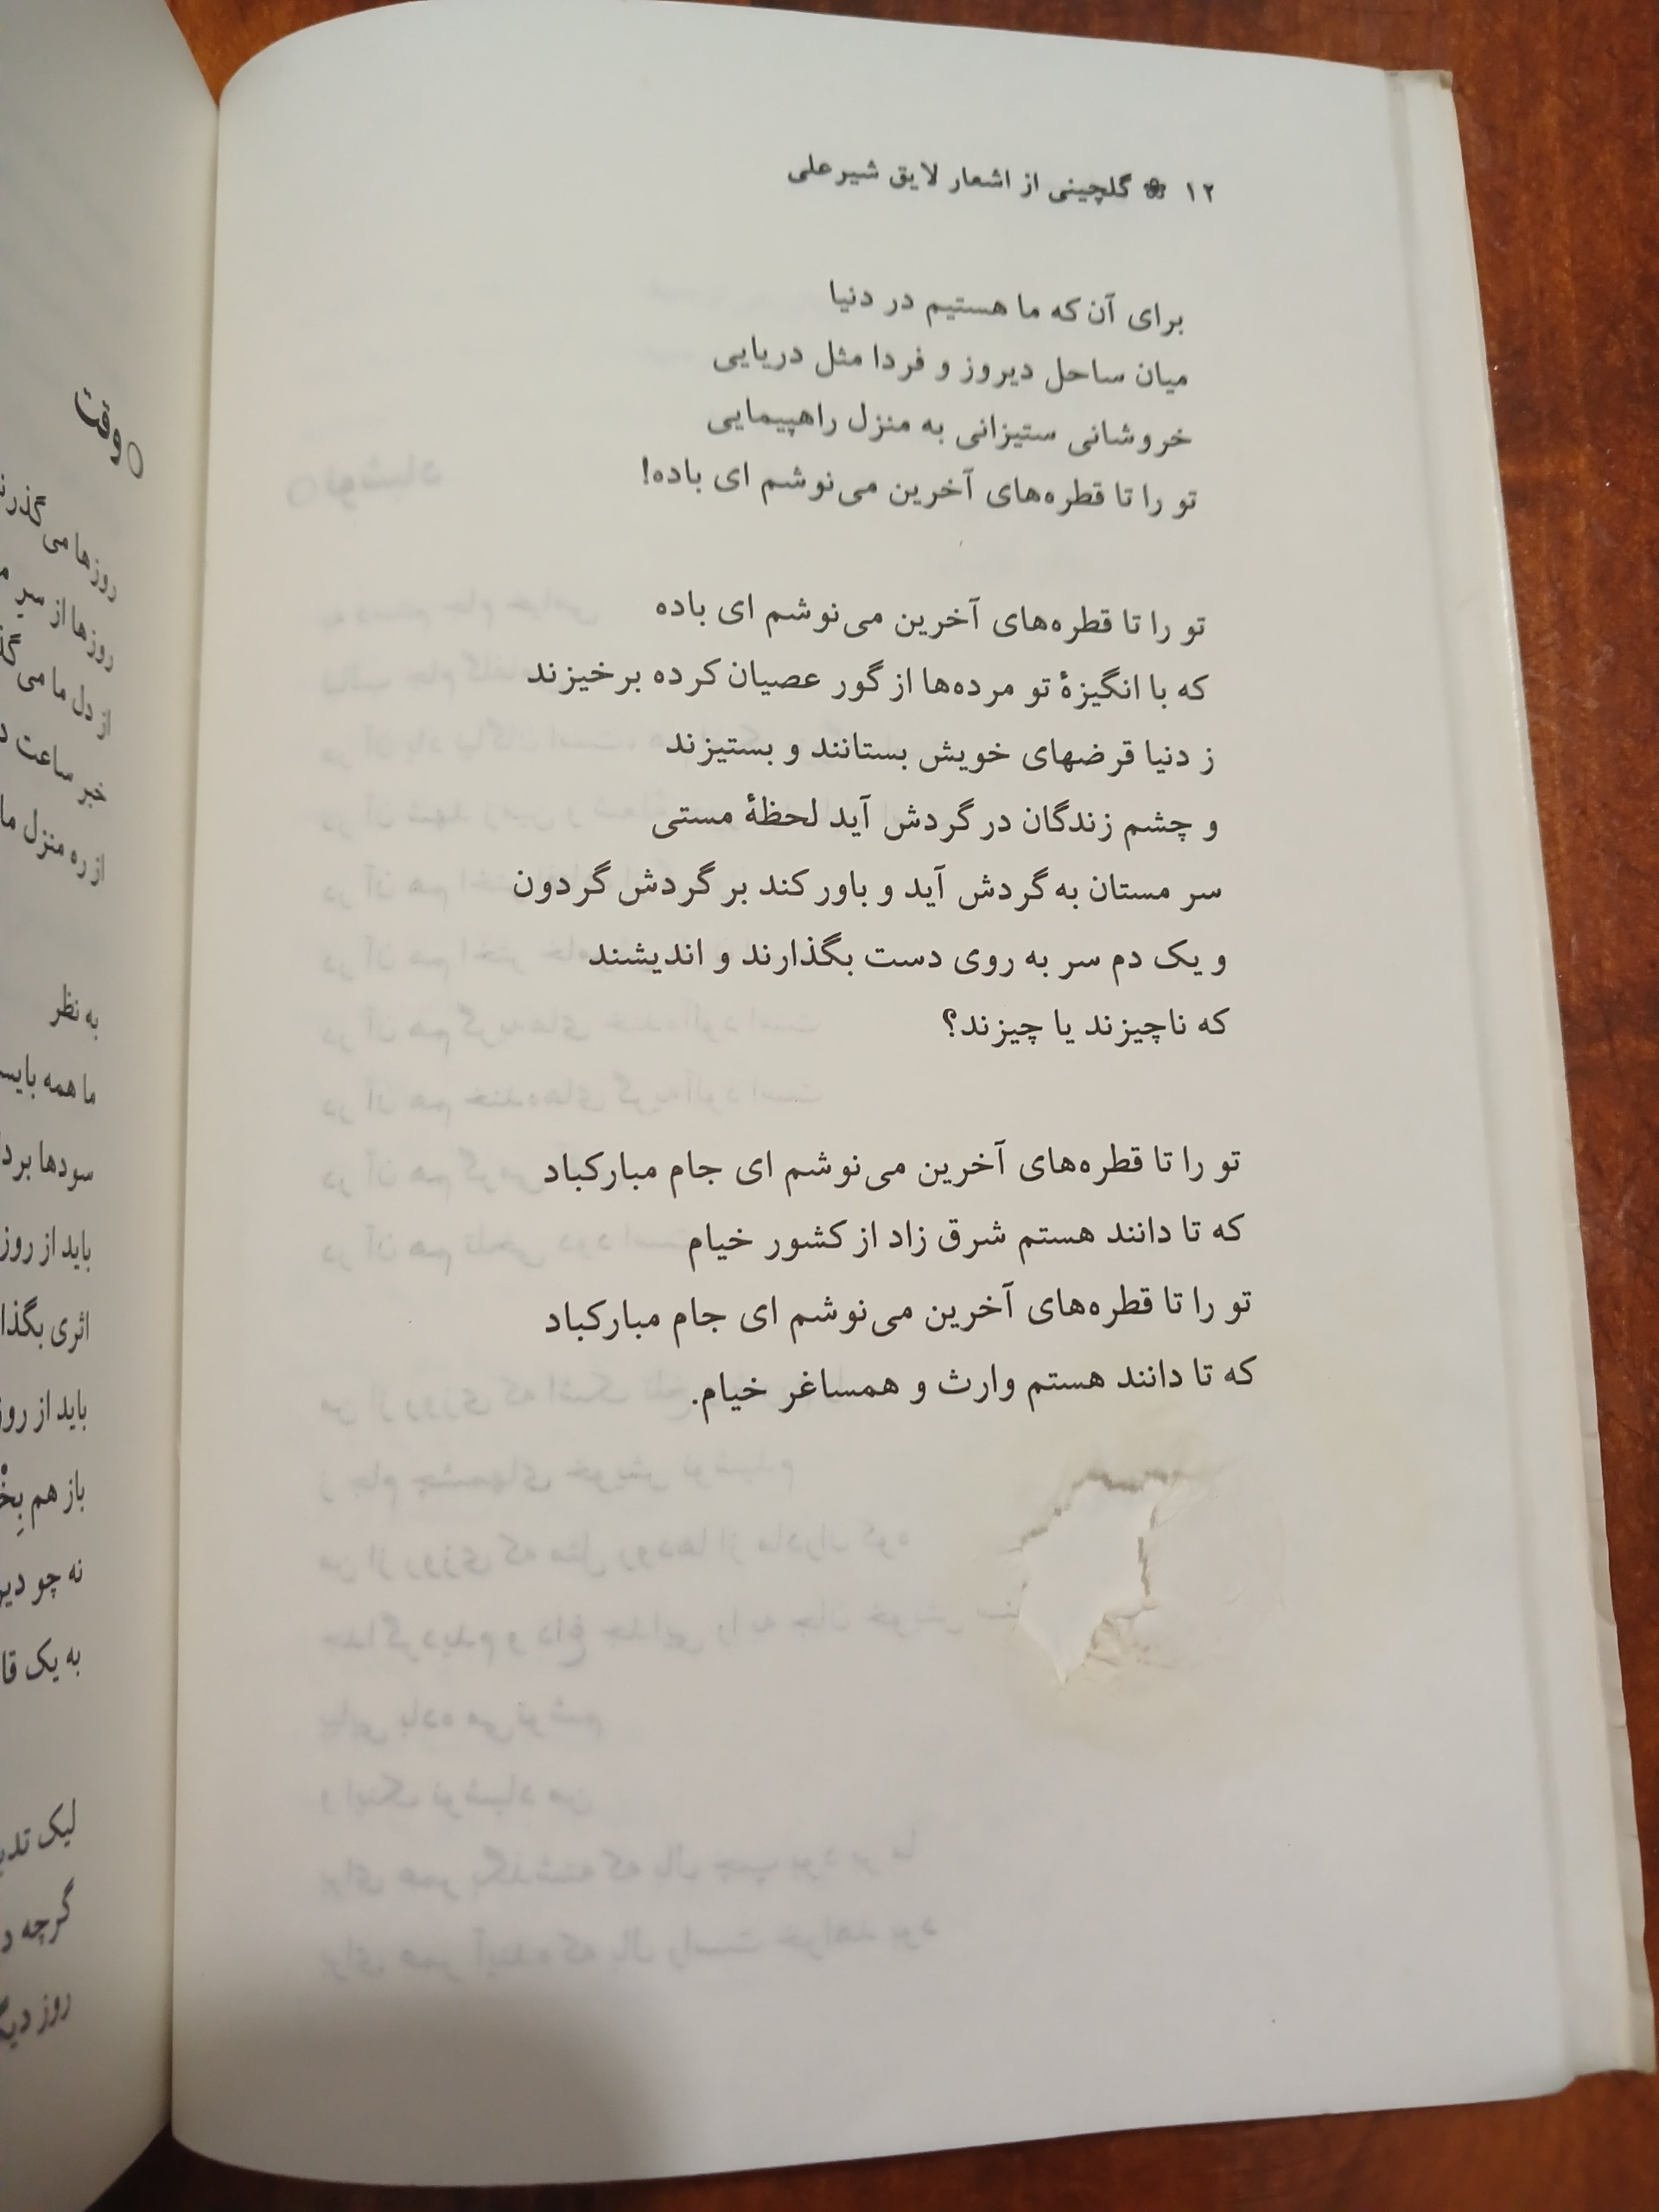 ۱۲ ❀ گلچینی از اشعار لایق شیرعلی
برای آن که ما هستیم در دنیا
میان ساحل دیروز و فردا مثل دریایی
خروشانی ستیزانی به منزل راهپیمایی
تو را تا قطره‌های آخرین می‌نوشم ای باده!
تو را تا قطره‌های آخرین می‌نوشم ای باده
که با انگیزهٔ تو مرده‌ها از گور عصیان کرده برخیزند
ز دنیا قرضهای خویش بستانند و بستیزند
و چشم زندگان در گردش آید لحظهٔ مستی
سر مستان به گردش آید و باور کند بر گردش گردون
و یک دم سر به روی دست بگذارند و اندیشند
که ناچیزند یا چیزند؟
تو را تا قطره‌های آخرین می‌نوشم ای جام مبارکباد
که تا دانند هستم شرق زاد از کشور خیام
تو را تا قطره‌های آخرین می‌نوشم ای جام مبارکباد
که تا دانند هستم وارث و همساغر خیام.
وقت
روزها می
روزها از سر
از دل ما می
خبر ساعت
از ره منزل ما
به نظر
ما همه
سودها
باید از روز
اثری
باید از روز
باز هم
نه چو
به یک
لیک
گرچه
روز